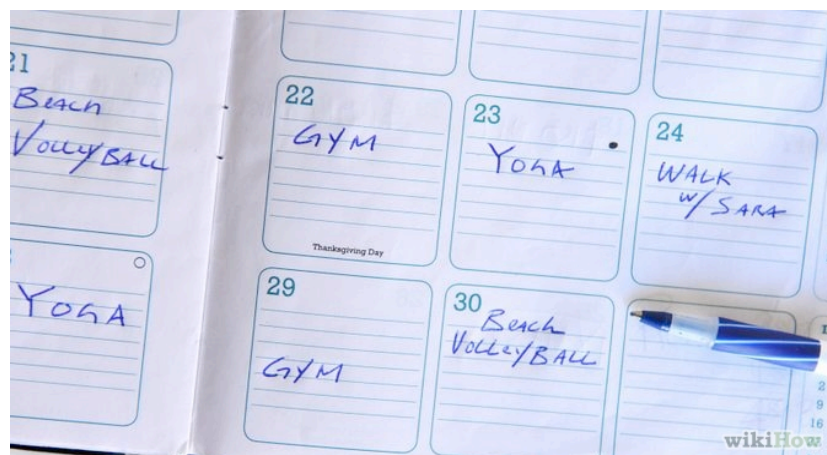 21
Beach
Volleyball
22
GYM
Thanksgiving Day
23
YOGA
24
WALK
w/ SARA
YOGA
29
GYM
30
Beach
Volleyball
2
9
16
wikiHow